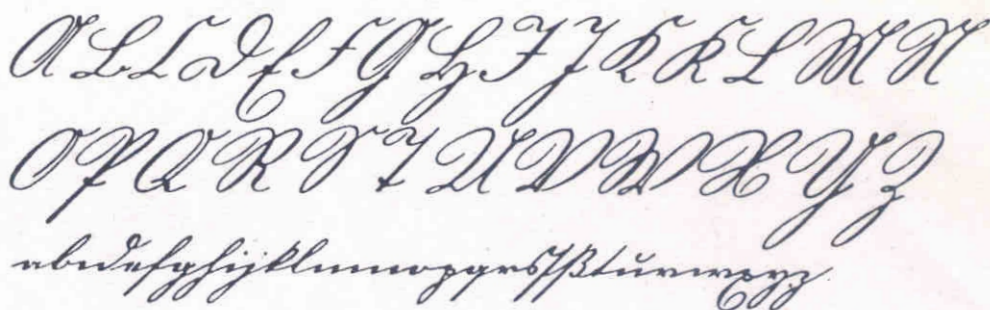 A B C D E F G H I J K K L M N
O P Q R S T U V W X Y Z
abcdefghijklmnopqrsſßtuvwxyz